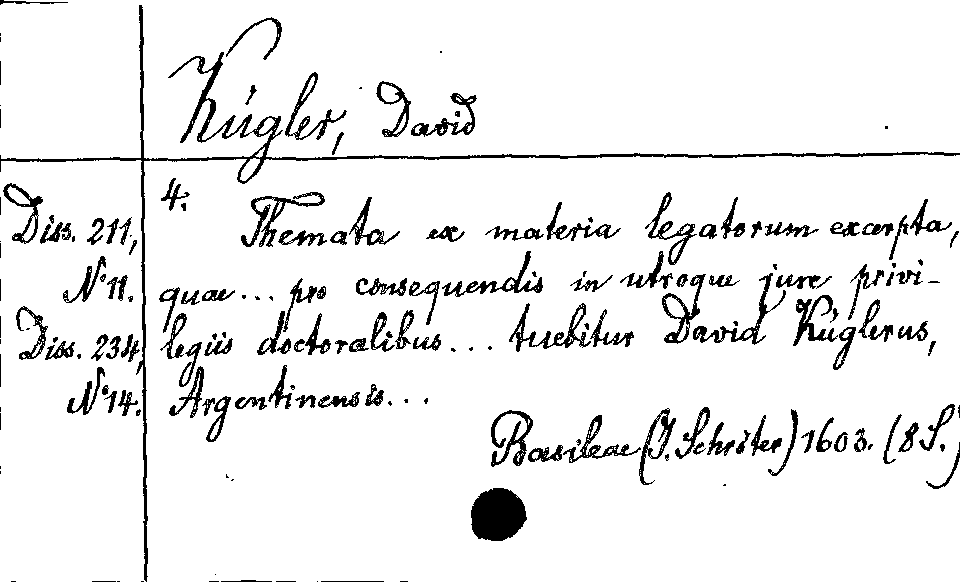 Kügler, David
4.
Diss. 211, Themata ex materia legatorum excerpta,
No 11. quae... pro consequendis in utroque jure privi-
Diss. 234, legiis doctoralibus... tuebitur David Küglerus,
No 14. Argentinensis...
Basileae (J. Schröter) 1603. (8 S.)